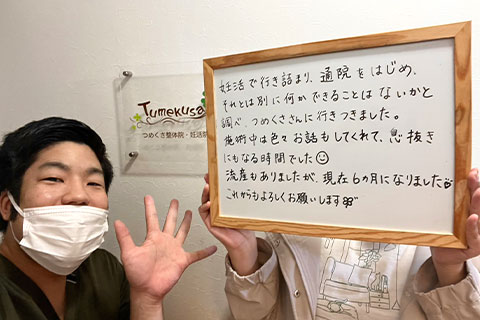 Tumekusa
つめくさ整体院・妊活
妊活で行き詰まり、通院をはじめ、
それとは別に何かできることはないかと
調べ、つめくささんに行きつきました。
施術中は色々お話もしてくれて、息抜き
にもなる時間でした
流産もありましたが、現在6ヵ月になりました
これからもよろしくお願いします